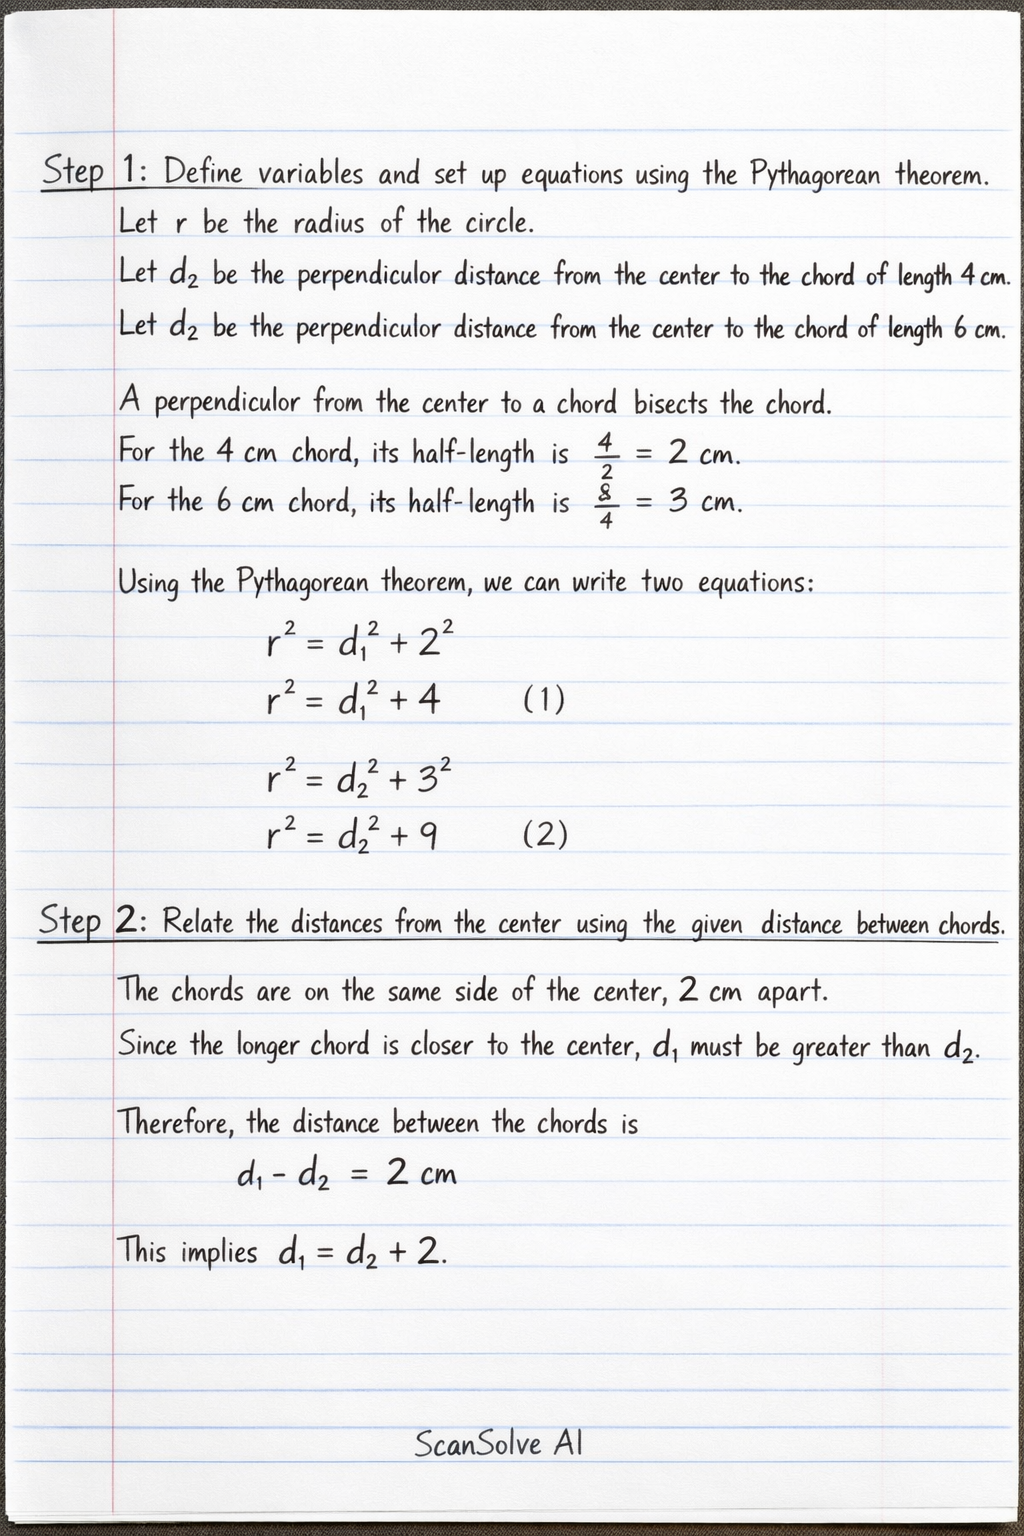 Step 1: Define variables and set up equations using the Pythagorean theorem.
Let r be the radius of the circle.
Let d₂ be the perpendiculor distance from the center to the chord of length 4 cm.
Let d₂ be the perpendiculor distance from the center to the chord of length 6 cm.
A perpendiculor from the center to a chord bisects the chord.
For the 4 cm chord, its half-length is 4/2 = 2 cm.
For the 6 cm chord, its half-length is 8/4 = 3 cm.
Using the Pythagorean theorem, we can write two equations:
r² = d₁² + 2²
r² = d₁² + 4 (1)
r² = d₂² + 3²
r² = d₂² + 9 (2)
Step 2: Relate the distances from the center using the given distance between chords.
The chords are on the same side of the center, 2 cm apart.
Since the longer chord is closer to the center, d₁ must be greater than d₂.
Therefore, the distance between the chords is
d₁ - d₂ = 2 cm
This implies d₁ = d₂ + 2.
ScanSolve AI